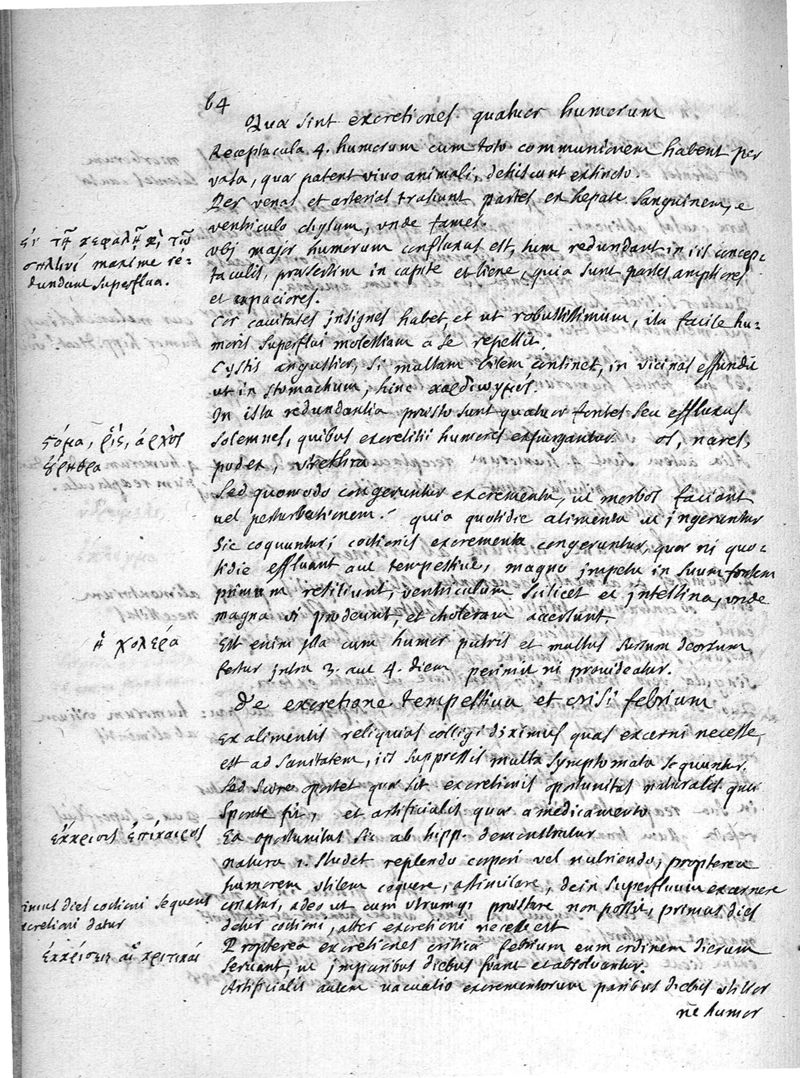 64
Quæ sint excretiones quatuor humorum
Receptacula 4. humorum cum toto communionem habent per
vasa, quæ patent vivo animali, dehiscunt extincto.
Per venas et arterias trahunt partes ex hepate sanguinem, e
ventriculo chylum, unde fames.
Ἐν τῇ κεφαλῇ κ τῷ
σπληνί maxime re-
dundant superflua.
Ubj major humorum confluxus est, tum redundant in iis concep-
taculis, præsertim in capite et liene, quia sunt partes ampliores
et capaciores.
Cor cavitates jnsignes habet, et ut robustissimum, ita facile hu-
moris superflui molestiam a se repellit.
Cystis angustior, si multam bilem continet, in vicinas effundit
ut in stomachum, hinc καρδιωγμός.
In ista redundantia præsto sunt quatuor fontes seu effluxus
στόμα, ῥίς, ἀρχὸς
οὐρήθρα
solemnes, quibus excretitii humores expurgantur os, nares,
podex, urethra
Sed quomodo congeruntur excrementa, ut morbos faciant
vel perturbationem? quia quotidie alimenta ut jngeruntur
sic coquuntur; coctionis excrementa congeruntur, quæ ni quo-
tidie effluant aut tempestive, magno jmpetu in suum fontem
primum resiliunt, ventriculum scilicet et jntestina, unde
magna vi prodeunt, et choleram accersunt.
ἡ χολέρα
Est enim jlla cum humor putris et multus sursum deorsum
fertur intra 3. aut 4. diem perimit ni provideatur.
De excretione tempestiva et crisi febrium
Ex alimentis reliquias colligi diximus quas excerni necesse,
est ad sanitatem, iis suppressis multa symptomata sequuntur.
Sed scire oportet quæ sit excretionis oportunitas naturalis quæ
sponte fit, et artificialis quæ a medicamento
ἔκκρισις ἐπίκαιρος
Ea oportunitas sic ab hipp. demonstratur
natura 1. studet replendo corpori vel nutriendo, propterea
humorem utilem coquere, assimilare, dein superfluum excernere
primus dies coctioni sequens
excretioni datur
conatur, adeo ut cum utrumq; præstare non possit, primus dies
detur coctioni, alter excretioni necesse est
ἐκκρίσεις αἱ κριτικαί
Propterea excretiones criticæ febrium eum ordinem dierum
servant, ut jmparibus diebus fiant et absolvantur.
Artificialis autem vacuatio excrementorum paribus diebus utilior
ne humor